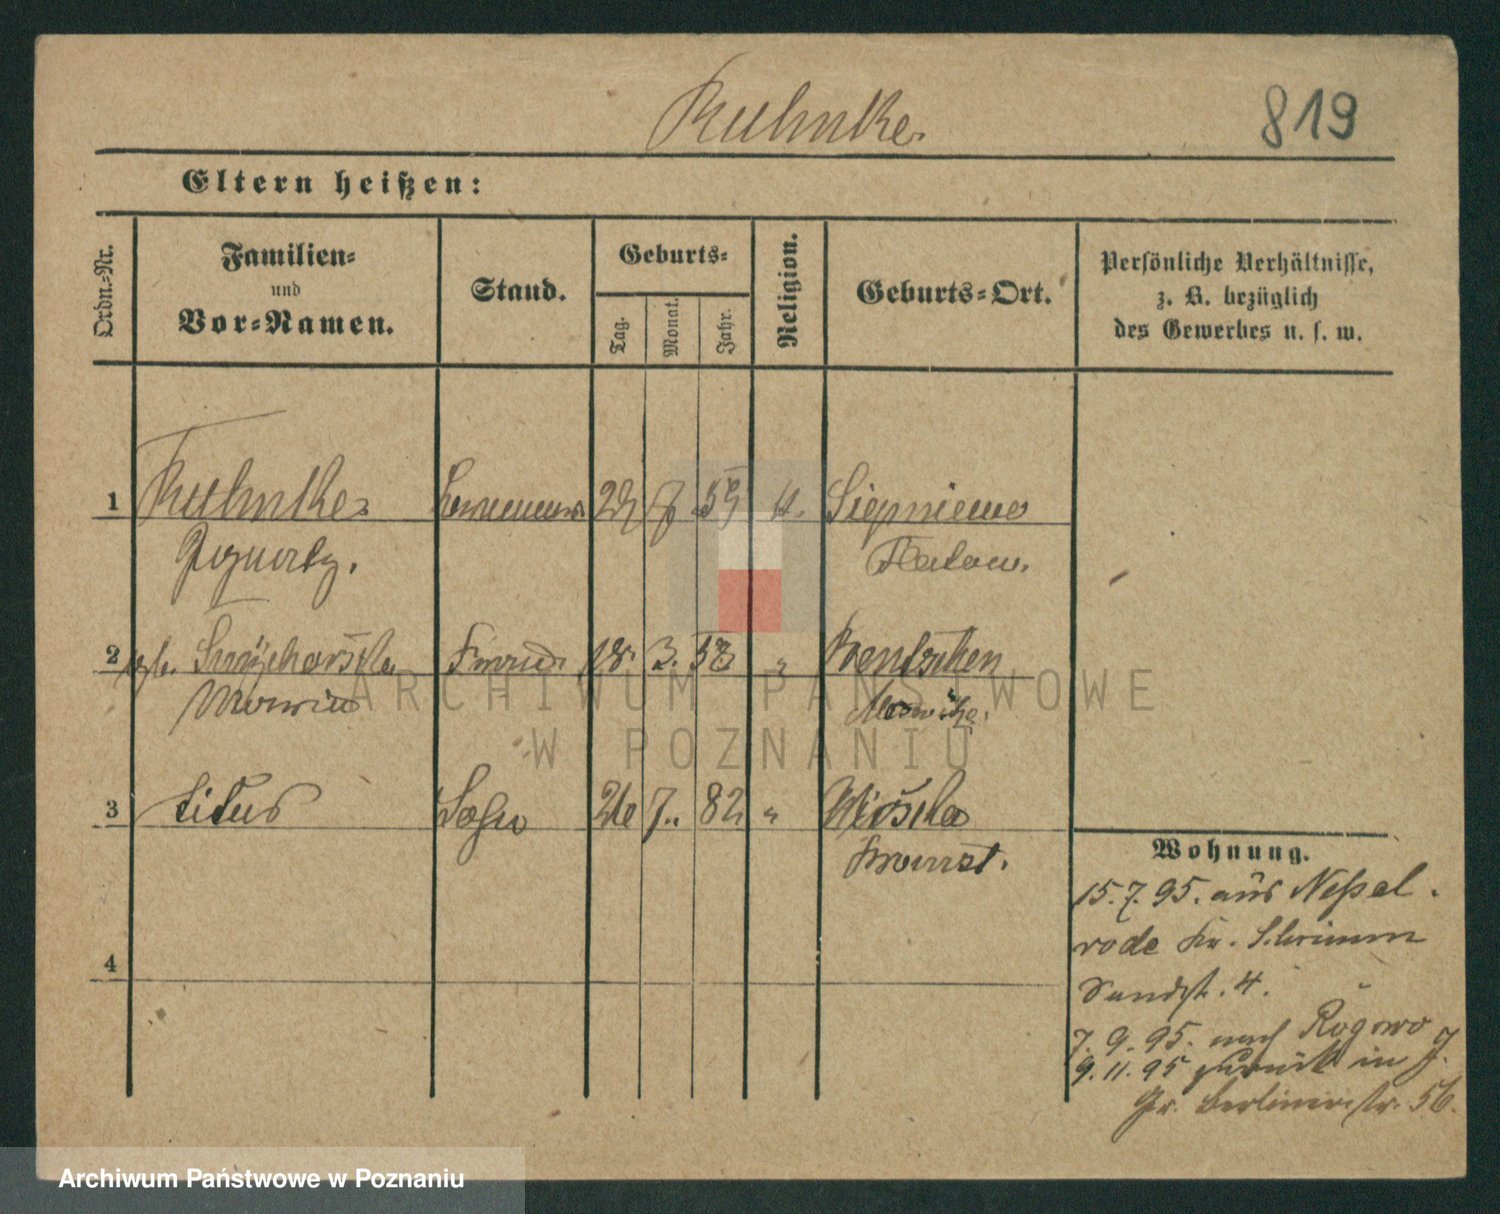 Kuhnke.
819
Eltern heißen:
Ordn.-Nr.
Familien-
und
Vor-Namen.
Stand.
Geburts-
Tag.
Monat.
Jahr.
Religion.
Geburts-Ort.
Persönliche Verhältnisse,
z. B. bezüglich
des Gewerbes u. s. w.
1 Kuhnke 59 Siepniewo
Flatow.
2 geb. 18. 3. 58 " Bentschen
3 Titus Sohn 26 7. 82 "
4
Wohnung.
15. 7. 95. aus Neßel-
rode Kr. Schrimm
Sandstr. 4.
7. 9. 95. nach Rogowo
9. 11. 95 zurück in J.
Gr. Berlinerstr. 56.
ARCHIWUM PAŃSTWOWE
W POZNANIU
Archiwum Państwowe w Poznaniu